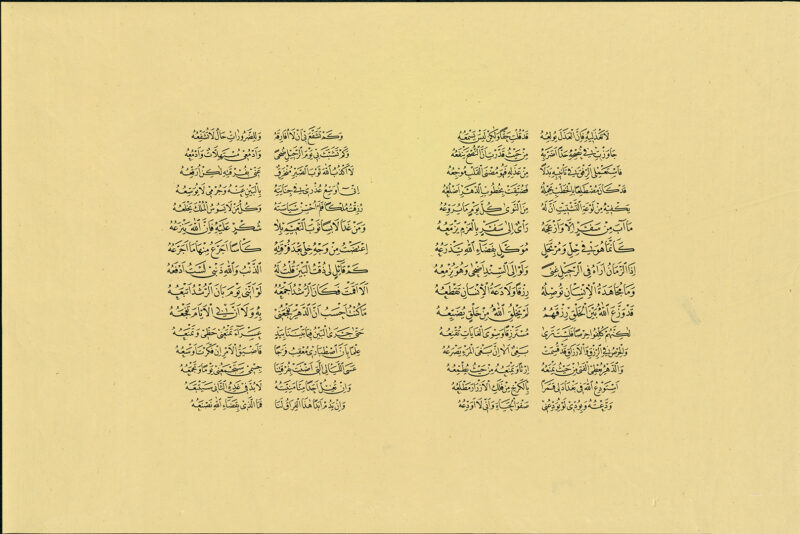 لا تعذليه فإن العذل يولعه قد قلت حقا ولكن ليس يسمعه
جاوزت في نصحه حدا أضر به من حيث قدرت أن النصح ينفعه
فاستعملي الرفق في تأنيبه بدلا من عذله فهو مضنى القلب موجعه
قد كان مضطلعا بالخطب يحمله فضيقت بخطوب الدهر أضلعه
يكفيه من لوعة التشتيت أن له من النوى كل يوم ما يروعه
ما آب من سفر إلا وأزعجه رأي إلى سفر بالعزم يزمعه
كأنما هو في حل ومرتحل موكل بفضاء الله يذرعه
إذا الزمان أراه في الرحيل غنى ولو إلى السند أضحى وهو يزمعه
وما مجاهدة الإنسان توصله رزقا ولا دعة الإنسان تقطعه
قد وزع الله بين الخلق رزقهم لم يخلق الله من خلق يضيعه
لكنهم كلفوا حرصا فلست ترى مسترزقا وسوى الغايات تقنعه
والحرص في الرزق والأرزاق قد قسمت بغي ألا إن بغي المرء يصرعه
والدهر يعطي الفتى من حيث يمنعه إرثا ويمنعه من حيث يطمعه
أستودع الله في بغداد لي قمرا بالكرخ من فلك الأزرار مطلعه
ودعته وبودي لو يودعني صفو الحياة وأني لا أودعه
وكم تشفع في أن لا أفارقه وللضرورات حال لا تشفعه
وكم تشبث بي يوم الرحيل ضحى وأدمعي مستهلات وأدمعه
لا أكذب الله ثوب الصبر منخرق عني بفرقته لكن أرقعه
إني أوسع عذري في جنايته بالبين عنه وجرمي لا يوسعه
رزقت ملكا فلم أحسن سياسته وكل من لا يسوس الملك يخلعه
ومن غدا لابسا ثوب النعيم بلا شكر عليه فإن الله ينزعه
اعتضت من وجه خلي بعد فرقته كأسا أجرع منها ما أجرعه
كم قائل لي ذقت البين قلت له الذنب والله ذنبي لست أدفعه
ألا أقمت فكان الرشد أجمعه لو أنني يوم بان الرشد أتبعه
ما كنت أحسب أن الدهر يفجعني به ولا أن بي الأيام تفجعه
حتى جرى البين فيما بيننا بيد عسراء تمنعني حظي وتمنعه
علما بأن اصطباري معقب فرجا فأضيق الأمر إن فكرت أوسعه
عسى الليالي التي أضنت بفرقتنا جسمي ستجمعني يوما وتجمعه
وإن تغل أحدا منا منيته لا بد في غده الثاني سيتبعه
وإن يدم أبدا هذا الفراق لنا فما الذي بقضاء الله نصنعه